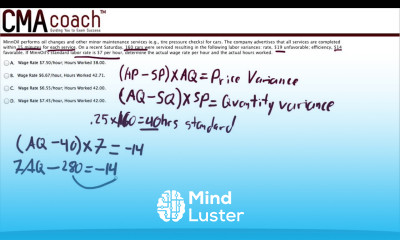 CMAcoach
Guiding You to Exam Success
MiniOil performs all changes and other minor maintenance services (e.g., tire pressure checks) for cars. The company advertises that all services are completed
within 15 minutes for each service. On a recent Saturday, 160 cars were serviced resulting in the following labor variances: rate, $19 unfavorable; efficiency, $14
favorable. If MiniOil's standard labor rate is $7 per hour, determine the actual wage rate per hour and the actual hours worked.
A. Wage Rate $7.50/hour; Hours Worked 38.00.
B. Wage Rate $6.67/hour; Hours Worked 42.71.
C. Wage Rate $6.55/hour; Hours Worked 42.00.
D. Wage Rate $7.45/hour; Hours Worked 42.00.
(AP-SP)xAQ=Price Variance
(AQ-SQ)xSP=Quantity variance
.25x160=40hrs standard
(AQ-40)x7=-14
7AQ-280=-14
Mind
Luster